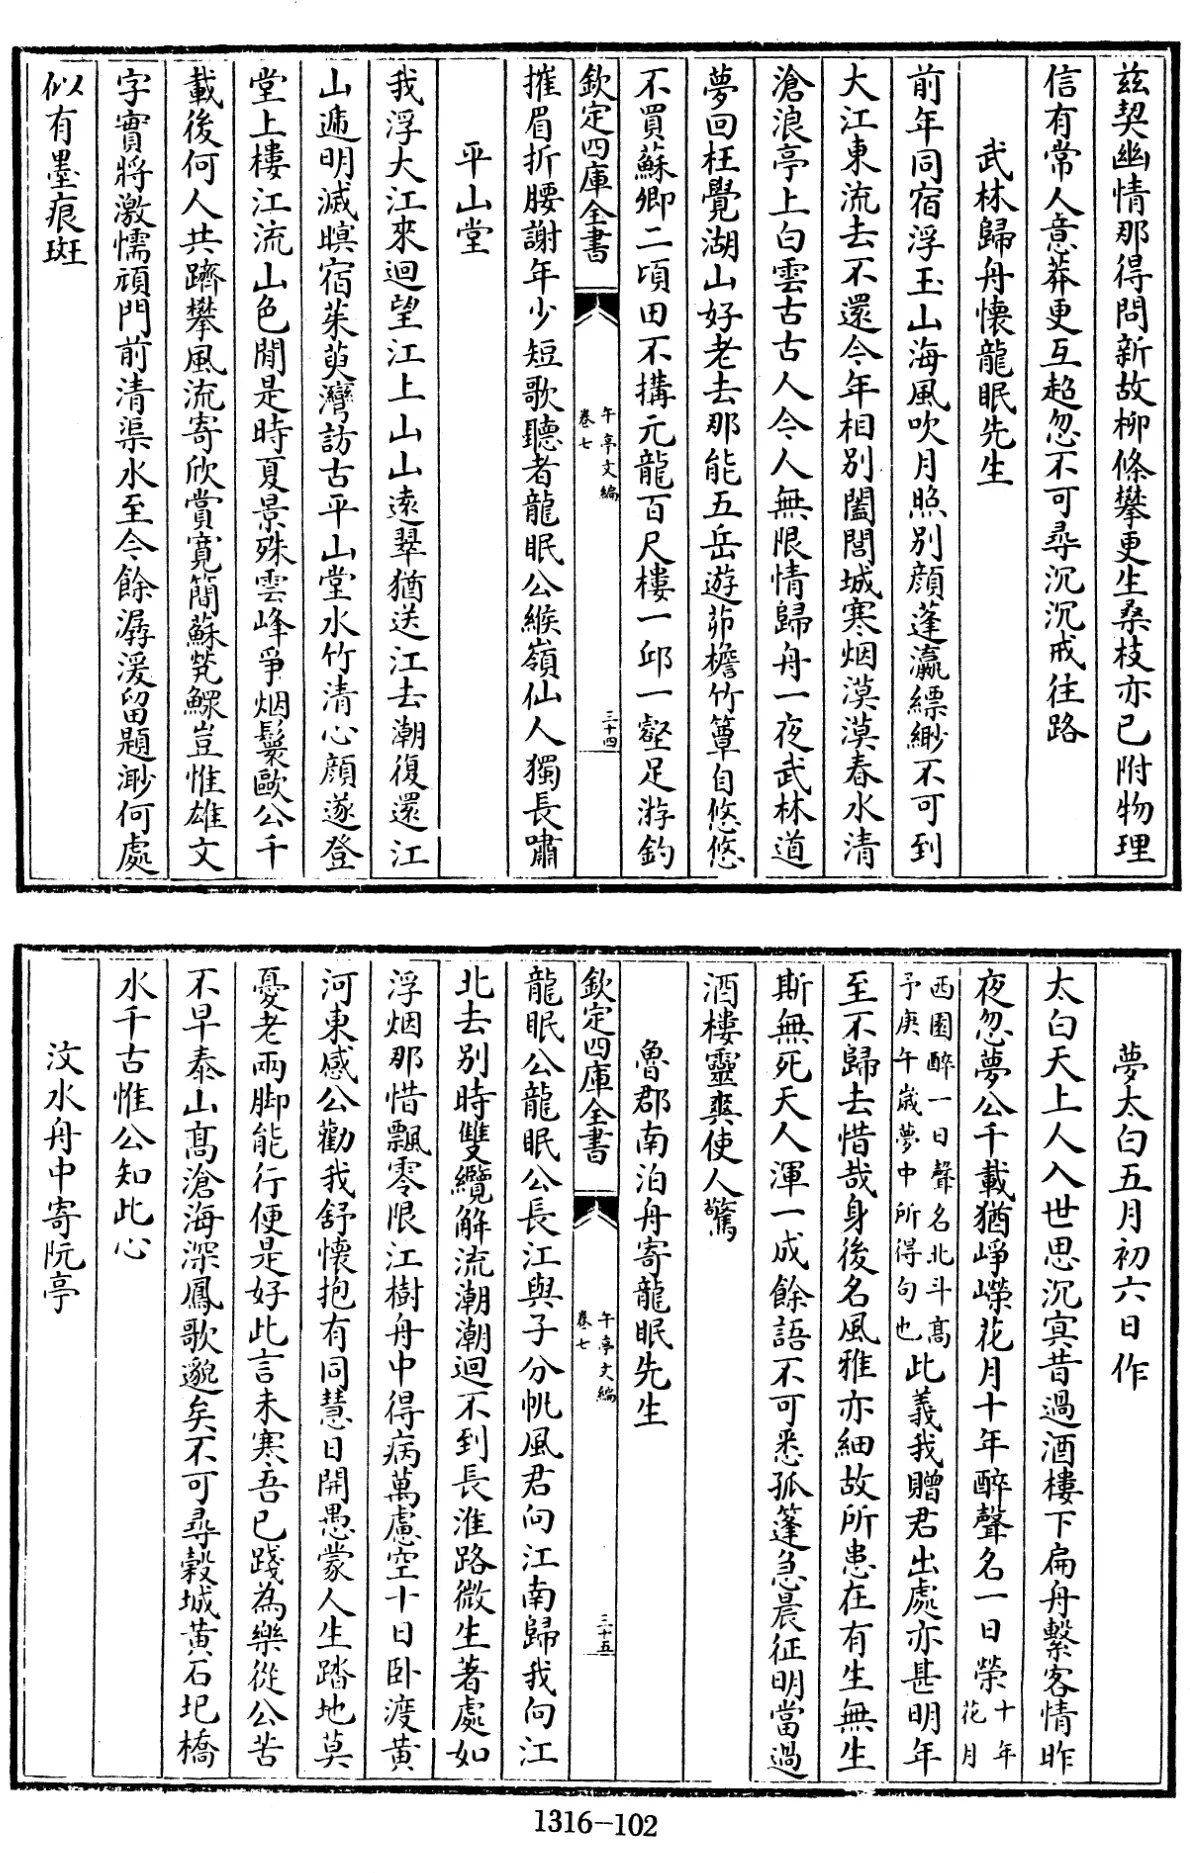 茲契幽情那得問新故柳條攀更生桑枝亦已附物理
信有常人意莽更互趨忽不可尋沉沉戒往路
武林歸舟懷龍眠先生
前年同宿浮玉山海風吹月照別顏蓬瀛縹緲不可到
大江東流去不還今年相別闔閭城寒烟漠漠春水清
滄浪亭上白雲古古人今人無限情歸舟一夜武林道
夢回枉覺湖山好老去那能五岳遊茆檐竹簟自悠悠
不買蘇卿二頃田不搆元龍百尺樓一邱一壑足游釣
欽定四庫全書
午亭文編
卷七
三十四
摧眉折腰謝年少短歌聽者龍眠公緱嶺仙人獨長嘯
平山堂
我浮大江來迴望江上山山遠翠猶送江去潮復還江
山遞明滅暝宿茱萸灣訪古平山堂水竹清心顏遂登
堂上樓江流山色閒是時夏景殊雲峰爭烟鬟歐公千
載後何人共躋攀風流寄欣賞寬簡蘇煢鰥豈惟雄文
字實將激懦頑門前清渠水至今餘潺湲留題渺何處
似有墨痕斑
夢太白五月初六日作
太白天上人入世思沉冥昔過酒樓下扁舟繫客情昨
夜忽夢公千載猶崢嶸花月十年醉聲名一日榮十年花月
西園醉一日聲名北斗高
予庚午歲夢中所得句也此義我贈君出處亦甚明年
至不歸去惜哉身後名風雅亦細故所患在有生無生
斯無死天人渾一成餘語不可悉孤篷急晨征明當過
酒樓靈爽使人驚
魯郡南泊舟寄龍眠先生
欽定四庫全書
午亭文編
卷七
三十五
龍眠公龍眠公長江與子分帆風君向江南歸我向江
北去別時雙纜解流潮潮迴不到長淮路微生著處如
浮烟那惜飄零限江樹舟中得病萬慮空十日臥渡黃
河東感公勸我舒懷抱有同慧日開愚蒙人生踏地莫
憂老兩脚能行便是好此言未寒吾已踐為樂從公苦
不早泰山高滄海深鳳歌邈矣不可尋穀城黃石圯橋
水千古惟公知此心
汶水舟中寄阮亭
1316-102